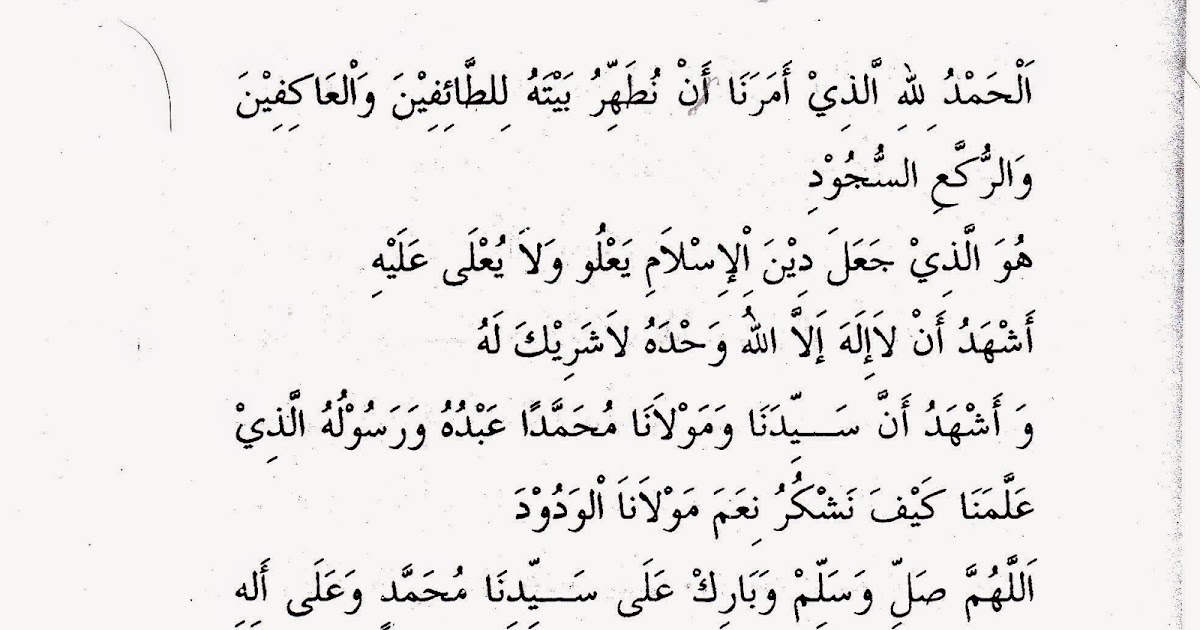 اَلْحَمْدُ لِلهِ الَّذِيْ أَمَرَنَا أَنْ نُطَهِّرُ بَيْتَهُ لِلطَّائِفِيْنَ وَاْلعَاكِفِيْنَ
وَالرُّكَّعِ السُّجُوْدِ
هُوَ الَّذِيْ جَعَلَ دِيْنَ اْلإِسْلَامِ يَعْلُو وَلاَ يُعْلَى عَلَيْهِ
أَشْهَدُ أَنْ لاَإِلَهَ إَلاَّ اللهُ وَحْدَهُ لاَشَرِيْكَ لَهُ
وَ أَشْهَدُ أَنَّ سَـــيِّدَنَا وَمَوْلاَنَا مُحَمَّدًا عَبْدُهُ وَرَسُوْلُهُ الَّذِيْ
عَلَّمَنَا كَيْفَ نَشْكُرُ نِعَمَ مَوْلاَناَ اْلوَدُوْدَ
اَللَّهُمَّ صَلِّ وَسَلِّمْ وَبَارِكْ عَلَى سَـــيِّدِنَا مُحَمَّدٍ وَعَلَى أَلِهِ